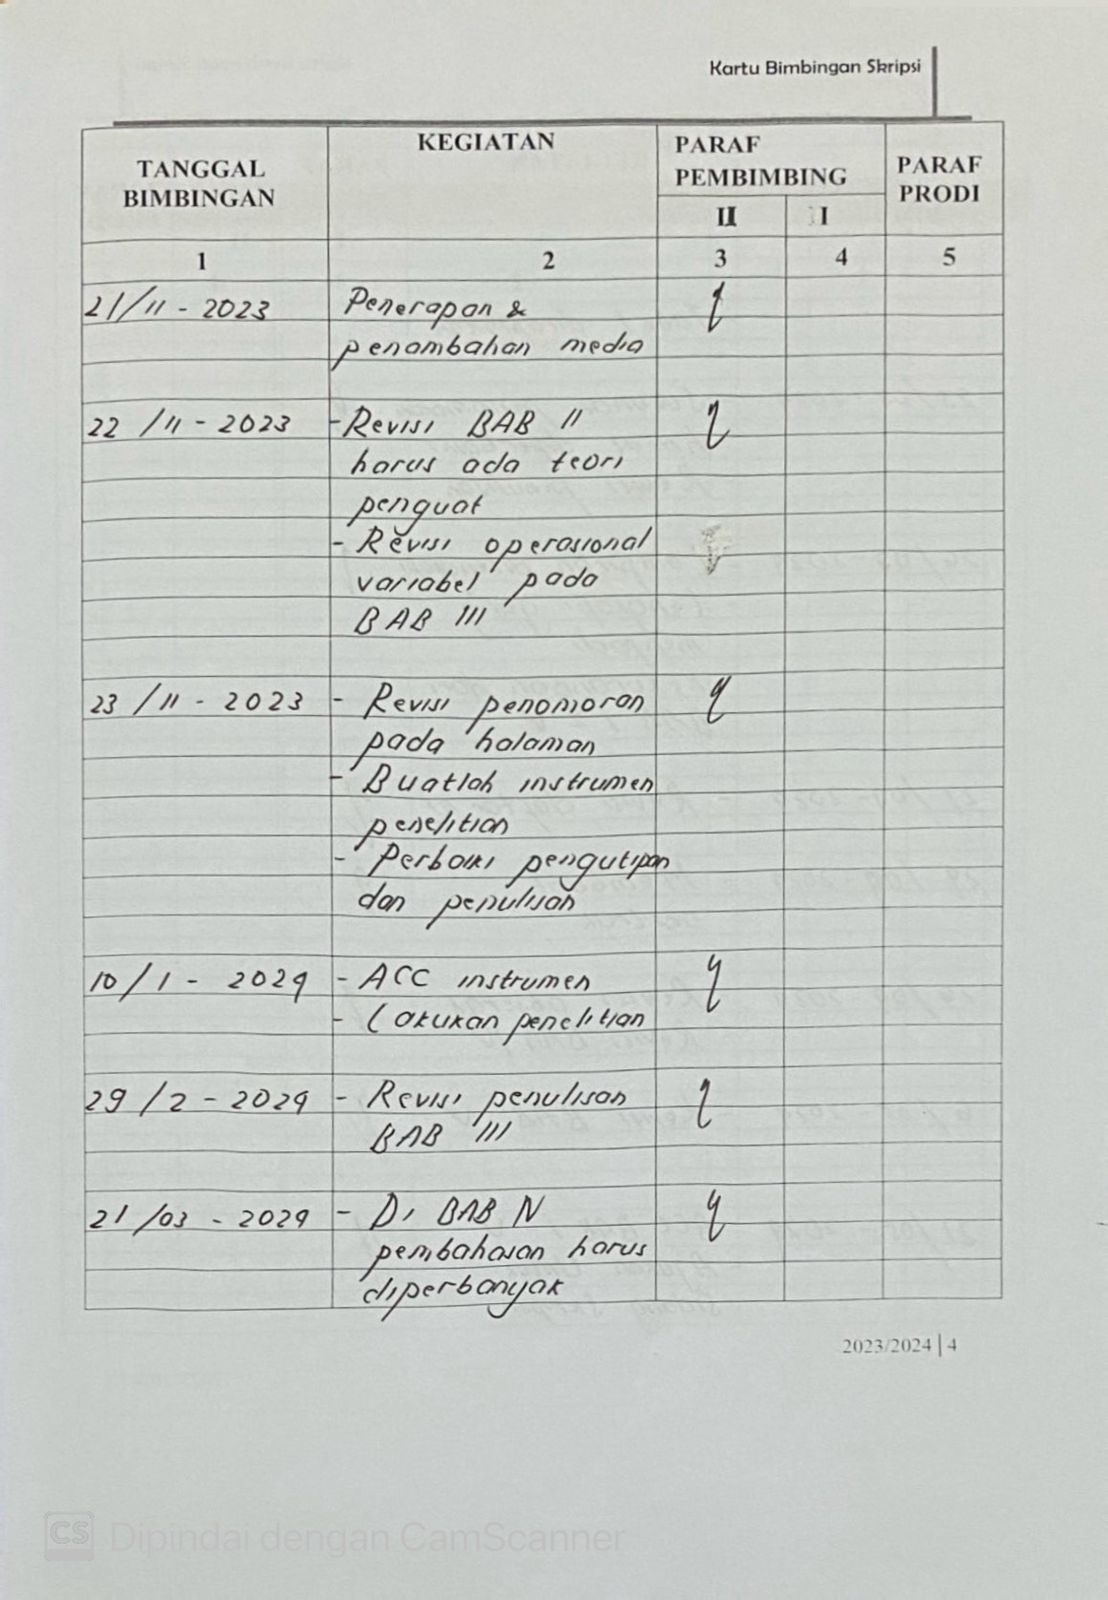 Kartu Bimbingan Skripsi
TANGGAL BIMBINGAN
KEGIATAN
PARAF PEMBIMBING
PARAF PRODI
II I
1 2 3 4 5
21/11 - 2023 Penerapan &
penambahan media
22 /11 - 2023 - Revisi BAB II
harus ada teori
penguat
- Revisi operasional
variabel pada
BAB III
23 /11 - 2023 - Revisi penomoran
pada halaman
- Buatlah instrumen
penelitian
- Perbaiki pengutipan
dan penulisan
10/1 - 2024 - ACC instrumen
- Lakukan penelitian
29 /2 - 2024 - Revisi penulisan
BAB III
21 /03 - 2024 - Di BAB IV
pembahasan harus
diperbanyak
2023/2024 | 4
CS Dipindai dengan CamScanner